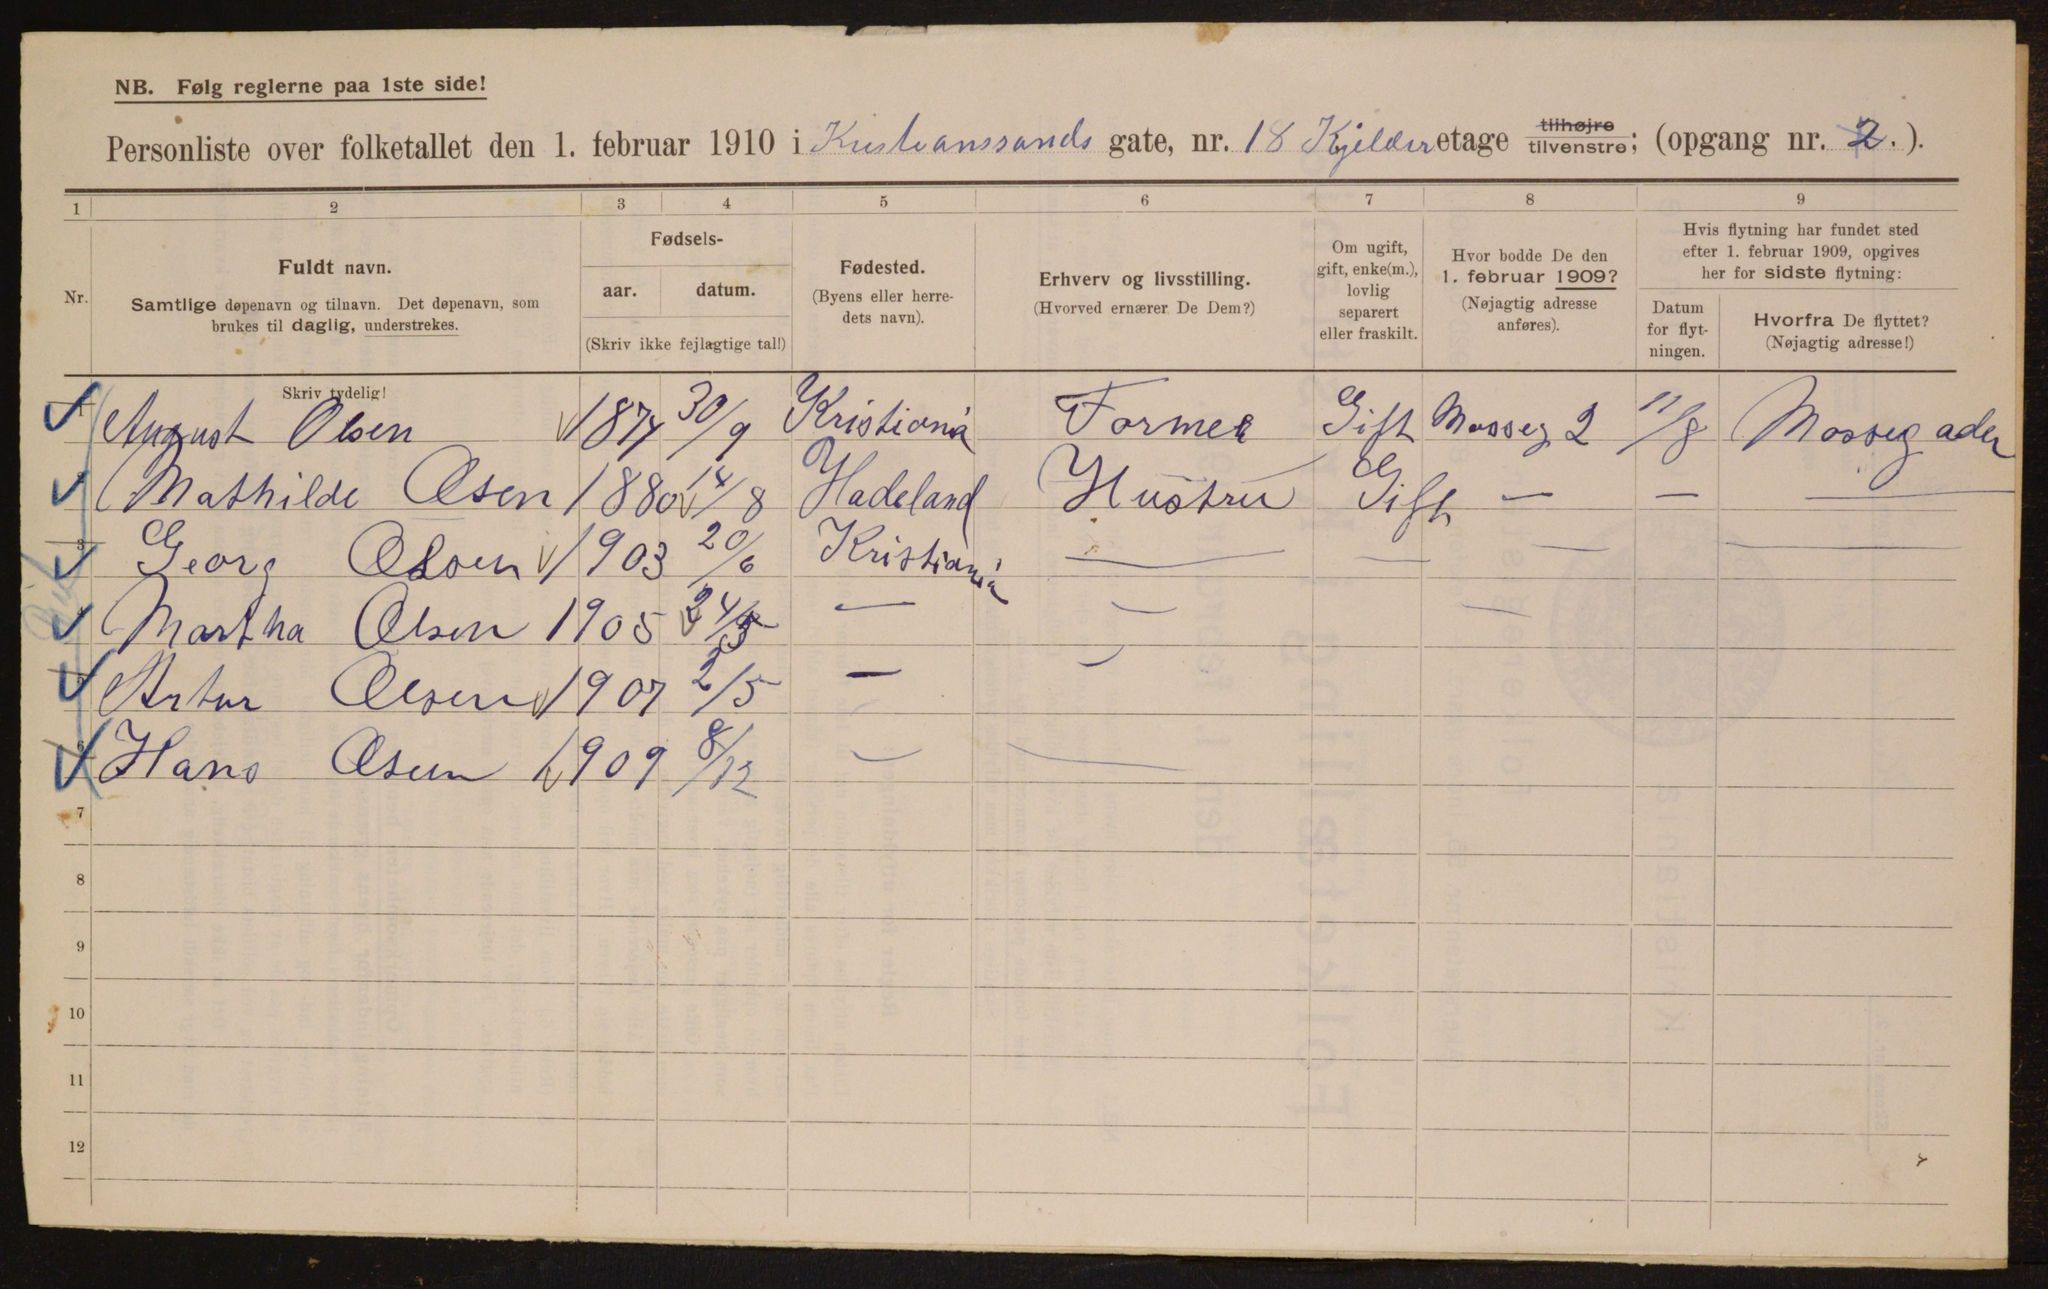 NB. Følg reglerne paa 1ste side!
Personliste over folketallet den 1. februar 1910 i Kristianssands gate, nr. 18 Kjelder etage tilhøjre tilvenstre; (opgang nr. 2.).
1 2 3 4 5 6 7 8 9
Nr.
Fuldt navn.
Samtlige døpenavn og tilnavn. Det døpenavn, som
brukes til daglig, understrekes.
Fødsels-
aar. datum.
(Skriv ikke fejlagtige tal!)
Fødested.
(Byens eller herre-
dets navn).
Erhverv og livsstilling.
(Hvorved ernærer De Dem?)
Om ugift,
gift, enke(m.),
lovlig
separert
eller fraskilt.
Hvor bodde De den
1. februar 1909?
(Nøjagtig adresse
anføres).
Hvis flytning har fundet sted
efter 1. februar 1909, opgives
her for sidste flytning:
Datum
for flyt-
ningen.
Hvorfra De flyttet?
(Nøjagtig adresse!)
Skriv tydelig!
1 August Olsen 1874 30/9 Kristiania Former Gift Mosseg 2 11/8 Mosseg aden
2 Mathilde Olsen 1880 14/8 Hadeland Hustru Gift — — —
3 Georg Olsen 1903 20/6 Kristiania — — — —
4 Martha Olsen 1905 24/3 — — —
5 Artur Olsen 1907 2/5 — —
6 Hans Olsen 1909 8/12 — —
7
8
9
10
11
12